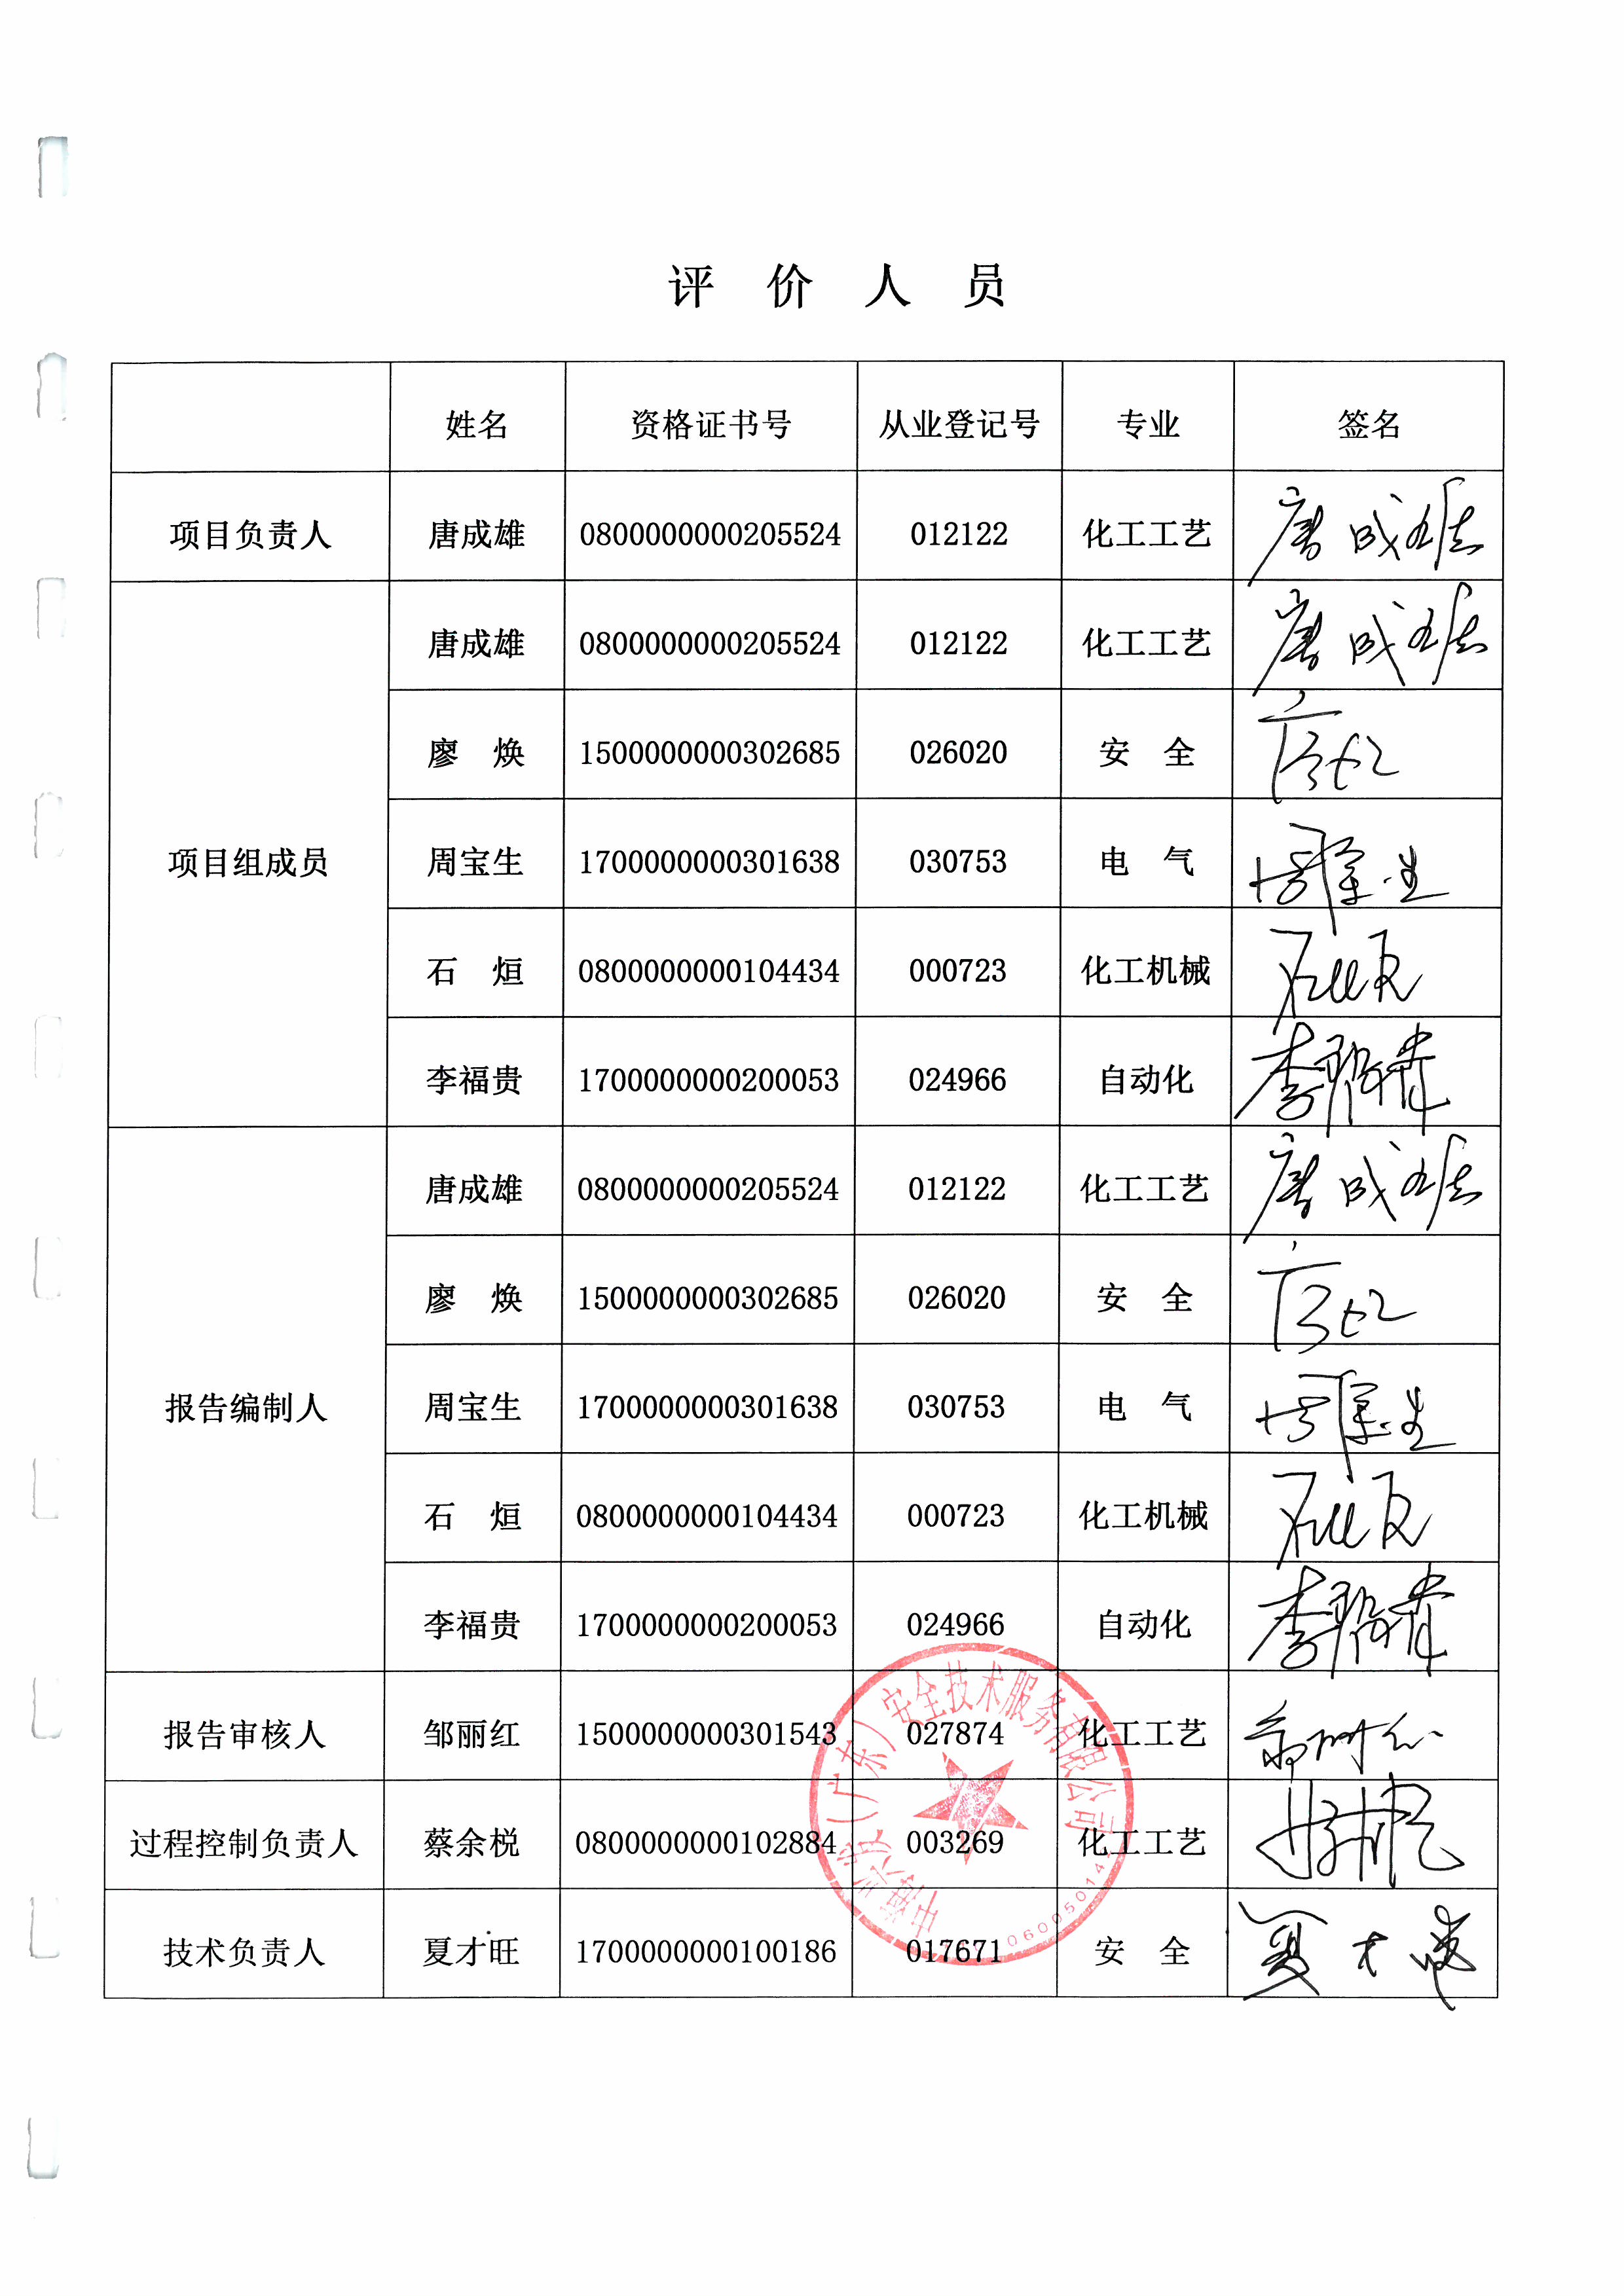 评 价 人 员
姓名 资格证书号 从业登记号 专业 签名
项目负责人 唐成雄 0800000000205524 012122 化工工艺 唐成雄
项目组成员 唐成雄 0800000000205524 012122 化工工艺 唐成雄
廖 焕 1500000000302685 026020 安 全
周宝生 1700000000301638 030753 电 气 周宝生
石 烜 0800000000104434 000723 化工机械
李福贵 1700000000200053 024966 自动化 李福贵
报告编制人 唐成雄 0800000000205524 012122 化工工艺 唐成雄
廖 焕 1500000000302685 026020 安 全
周宝生 1700000000301638 030753 电 气 周宝生
石 烜 0800000000104434 000723 化工机械
李福贵 1700000000200053 024966 自动化 李福贵
报告审核人 邹丽红 1500000000301543 027874 化工工艺
过程控制负责人 蔡余棁 0800000000102884 003269 化工工艺
技术负责人 夏才旺 1700000000100186 017671 安 全 夏才旺
(广东)安全技术服务有限公司